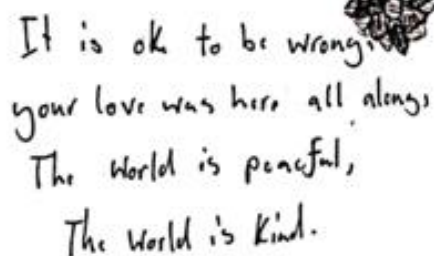 It is ok to be wrong,
your love was here all along,
The world is peaceful,
The world is kind.